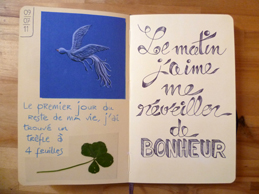 Le premier jour du
reste de ma vie, j'ai
trouvé un
trèfle à
4 feuilles
Le matin
j'aime
me
réveiller
de
BONHEUR